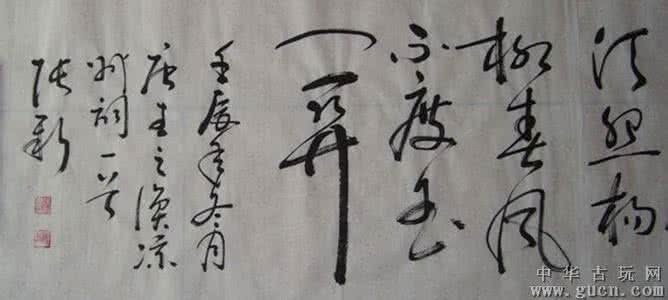 须怨杨
柳春风
不度玉
门关
壬辰年冬月
唐王之涣凉
州词一首
张新
中华古玩网
www.gucn.com